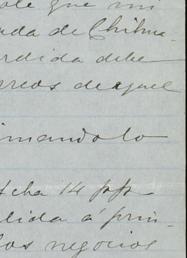 ole que mi
ada de Chihua-
erdida debe
rreos de aquel
imandolo
echa 14 ppº
elida á prin-
los negocios